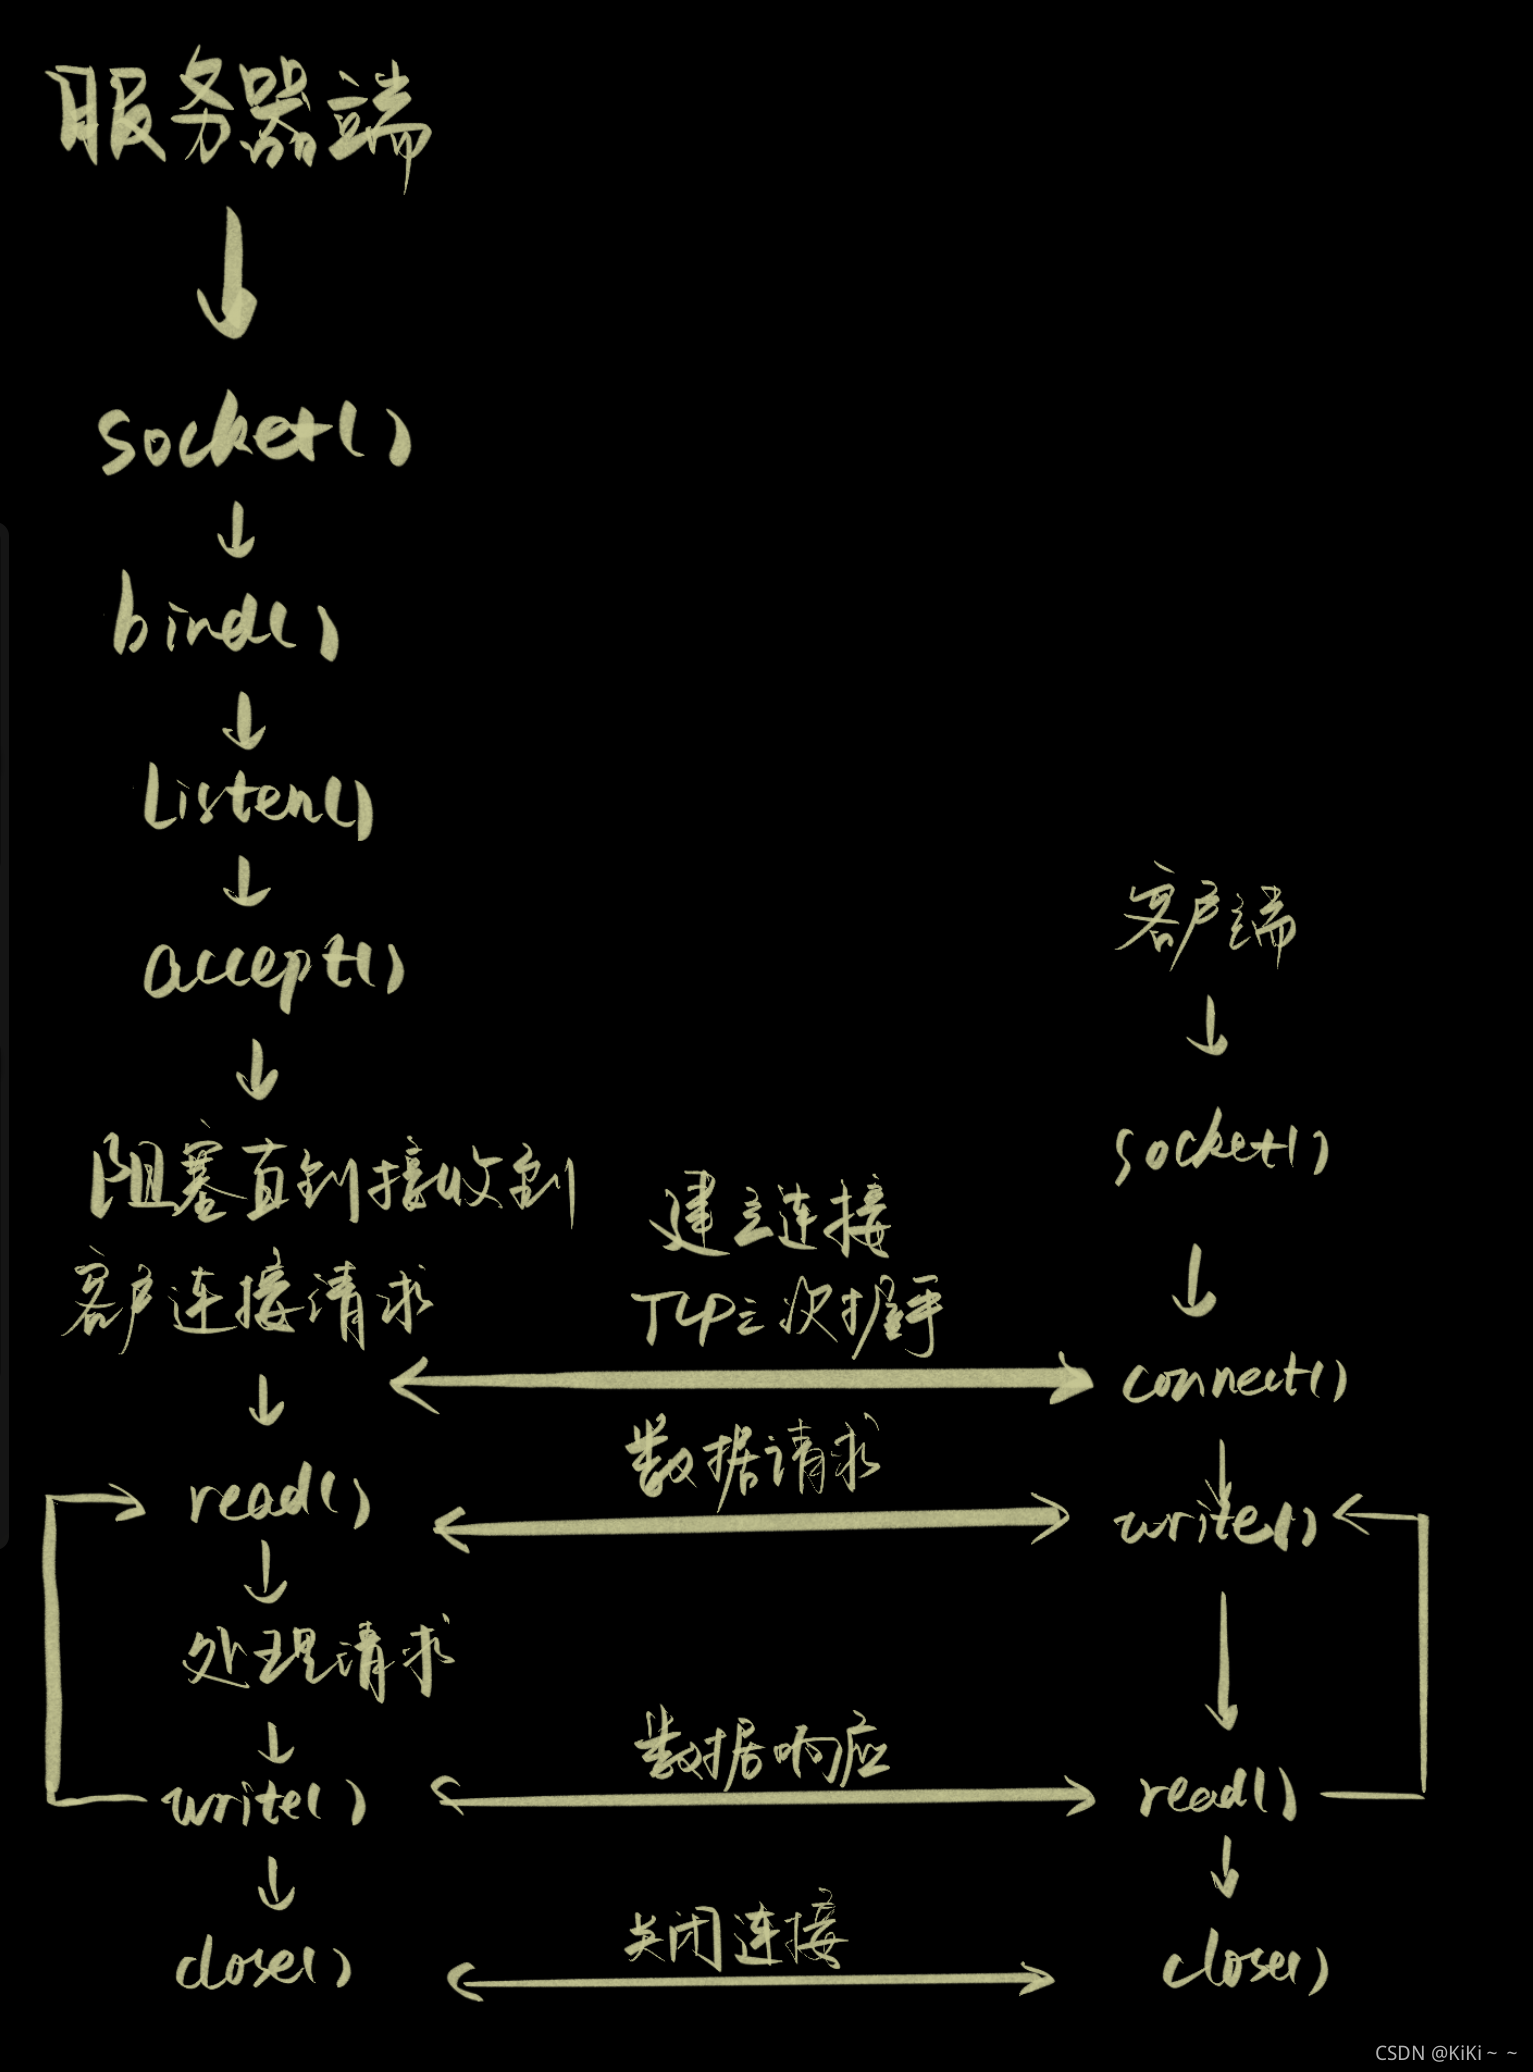 服务器端
socket()
bind()
Listen()
accept()
阻塞直到接收到
客户连接请求
read()
处理请求
write()
close()
建立连接
TCP三次握手
数据请求
数据响应
关闭连接
客户端
socket()
connect()
write()
read()
close()
CSDN @KiKi~ ~